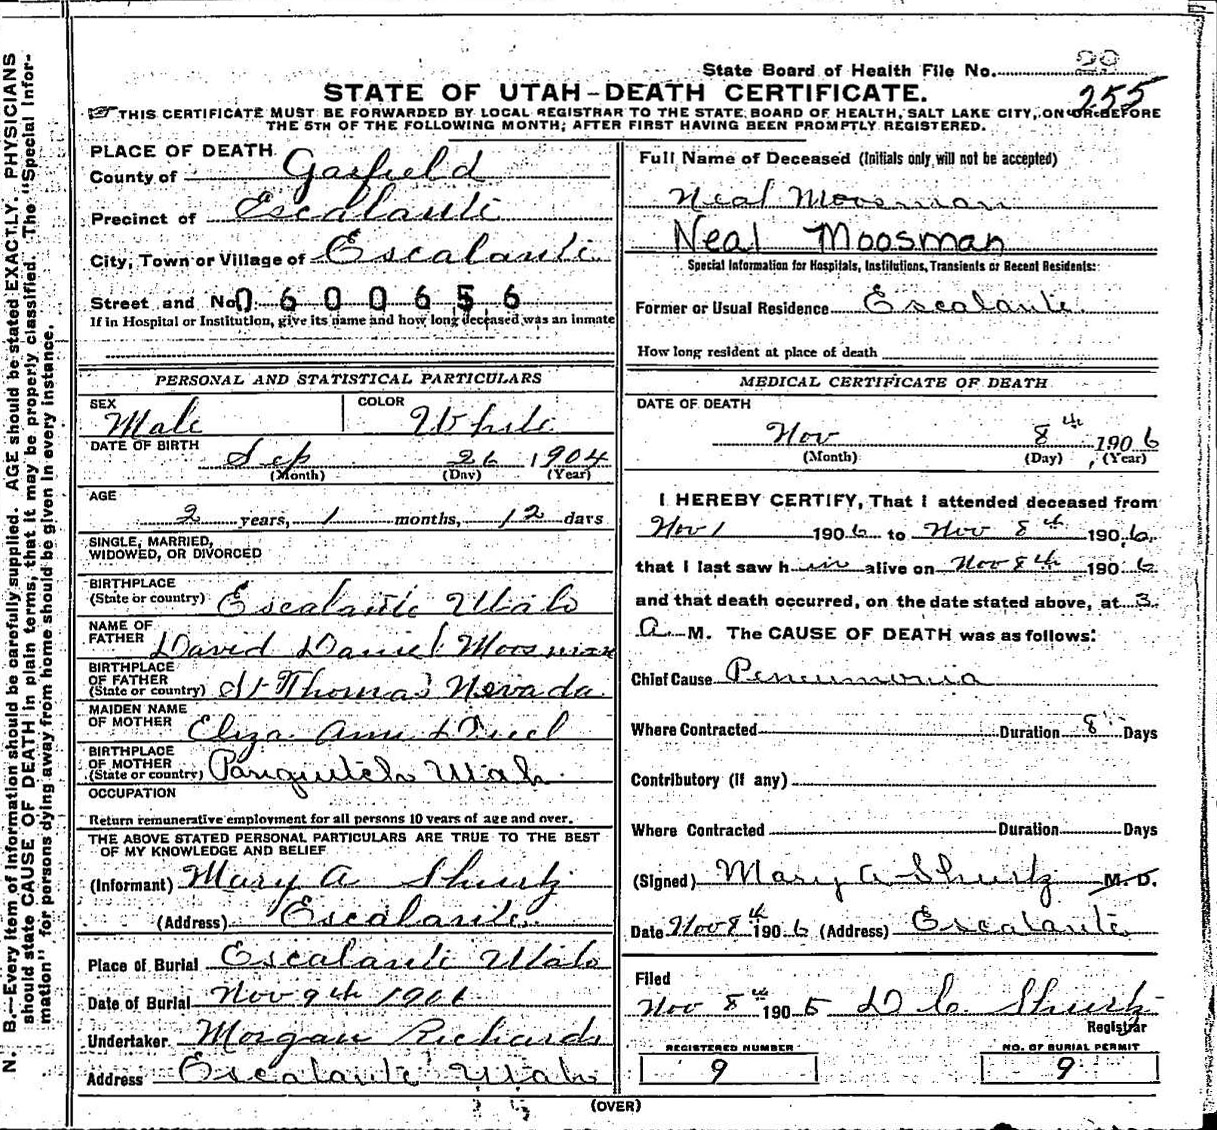 N. B.—Every item of information should be carefully supplied. AGE should be stated EXACTLY. PHYSICIANS
should state CAUSE OF DEATH in plain terms, that it may be properly classified. The "Special Infor-
mation" for persons dying away from home should be given in every instance.
State Board of Health File No. 20
255
STATE OF UTAH–DEATH CERTIFICATE.
THIS CERTIFICATE MUST BE FORWARDED BY LOCAL REGISTRAR TO THE STATE BOARD OF HEALTH, SALT LAKE CITY, ON OR BEFORE
THE 5TH OF THE FOLLOWING MONTH; AFTER FIRST HAVING BEEN PROMPTLY REGISTERED.
PLACE OF DEATH
County of Garfield
Precinct of Escalante
City, Town or Village of Escalante
Street and No. 0600656
If in Hospital or Institution, give its name and how long deceased was an inmate
PERSONAL AND STATISTICAL PARTICULARS
SEX Male COLOR White
DATE OF BIRTH Sep 26 1904
(Month) (Day) (Year)
AGE
2 years, 1 months, 12 days
SINGLE, MARRIED,
WIDOWED, OR DIVORCED
BIRTHPLACE
(State or country) Escalante Utah
NAME OF
FATHER David Daniel Moosman
BIRTHPLACE
OF FATHER
(State or country) St Thomas Nevada
MAIDEN NAME
OF MOTHER Eliza Ann
BIRTHPLACE
OF MOTHER
(State or country) Panguitch Utah
OCCUPATION
Return remunerative employment for all persons 10 years of age and over.
THE ABOVE STATED PERSONAL PARTICULARS ARE TRUE TO THE BEST
OF MY KNOWLEDGE AND BELIEF
(Informant) Mary A Shurtz
(Address) Escalante
Place of Burial Escalante Utah
Date of Burial Nov 9th 1906
Undertaker Morgan Richards
Address Escalante Utah
Full Name of Deceased (Initials only will not be accepted)
Neal Moosman
Neal Moosman
Special Information for Hospitals, Institutions, Transients or Recent Residents:
Former or Usual Residence Escalante
How long resident at place of death
MEDICAL CERTIFICATE OF DEATH
DATE OF DEATH
Nov 8th 1906
(Month) (Day) (Year)
I HEREBY CERTIFY, That I attended deceased from
Nov 1 1906 to Nov 8th 1906,
that I last saw him alive on Nov 8th 1906
and that death occurred, on the date stated above, at 3
A M. The CAUSE OF DEATH was as follows:
Chief Cause Peneumonia
Where Contracted Duration 8 Days
Contributory (if any)
Where Contracted Duration Days
(Signed) Mary A Shurtz M. D.
Date Nov 8th 1906 (Address) Escalante
Filed
Nov 8th 1905 D C Shurtz
Registrar
REGISTERED NUMBER
9
NO. OF BURIAL PERMIT
9
(OVER)